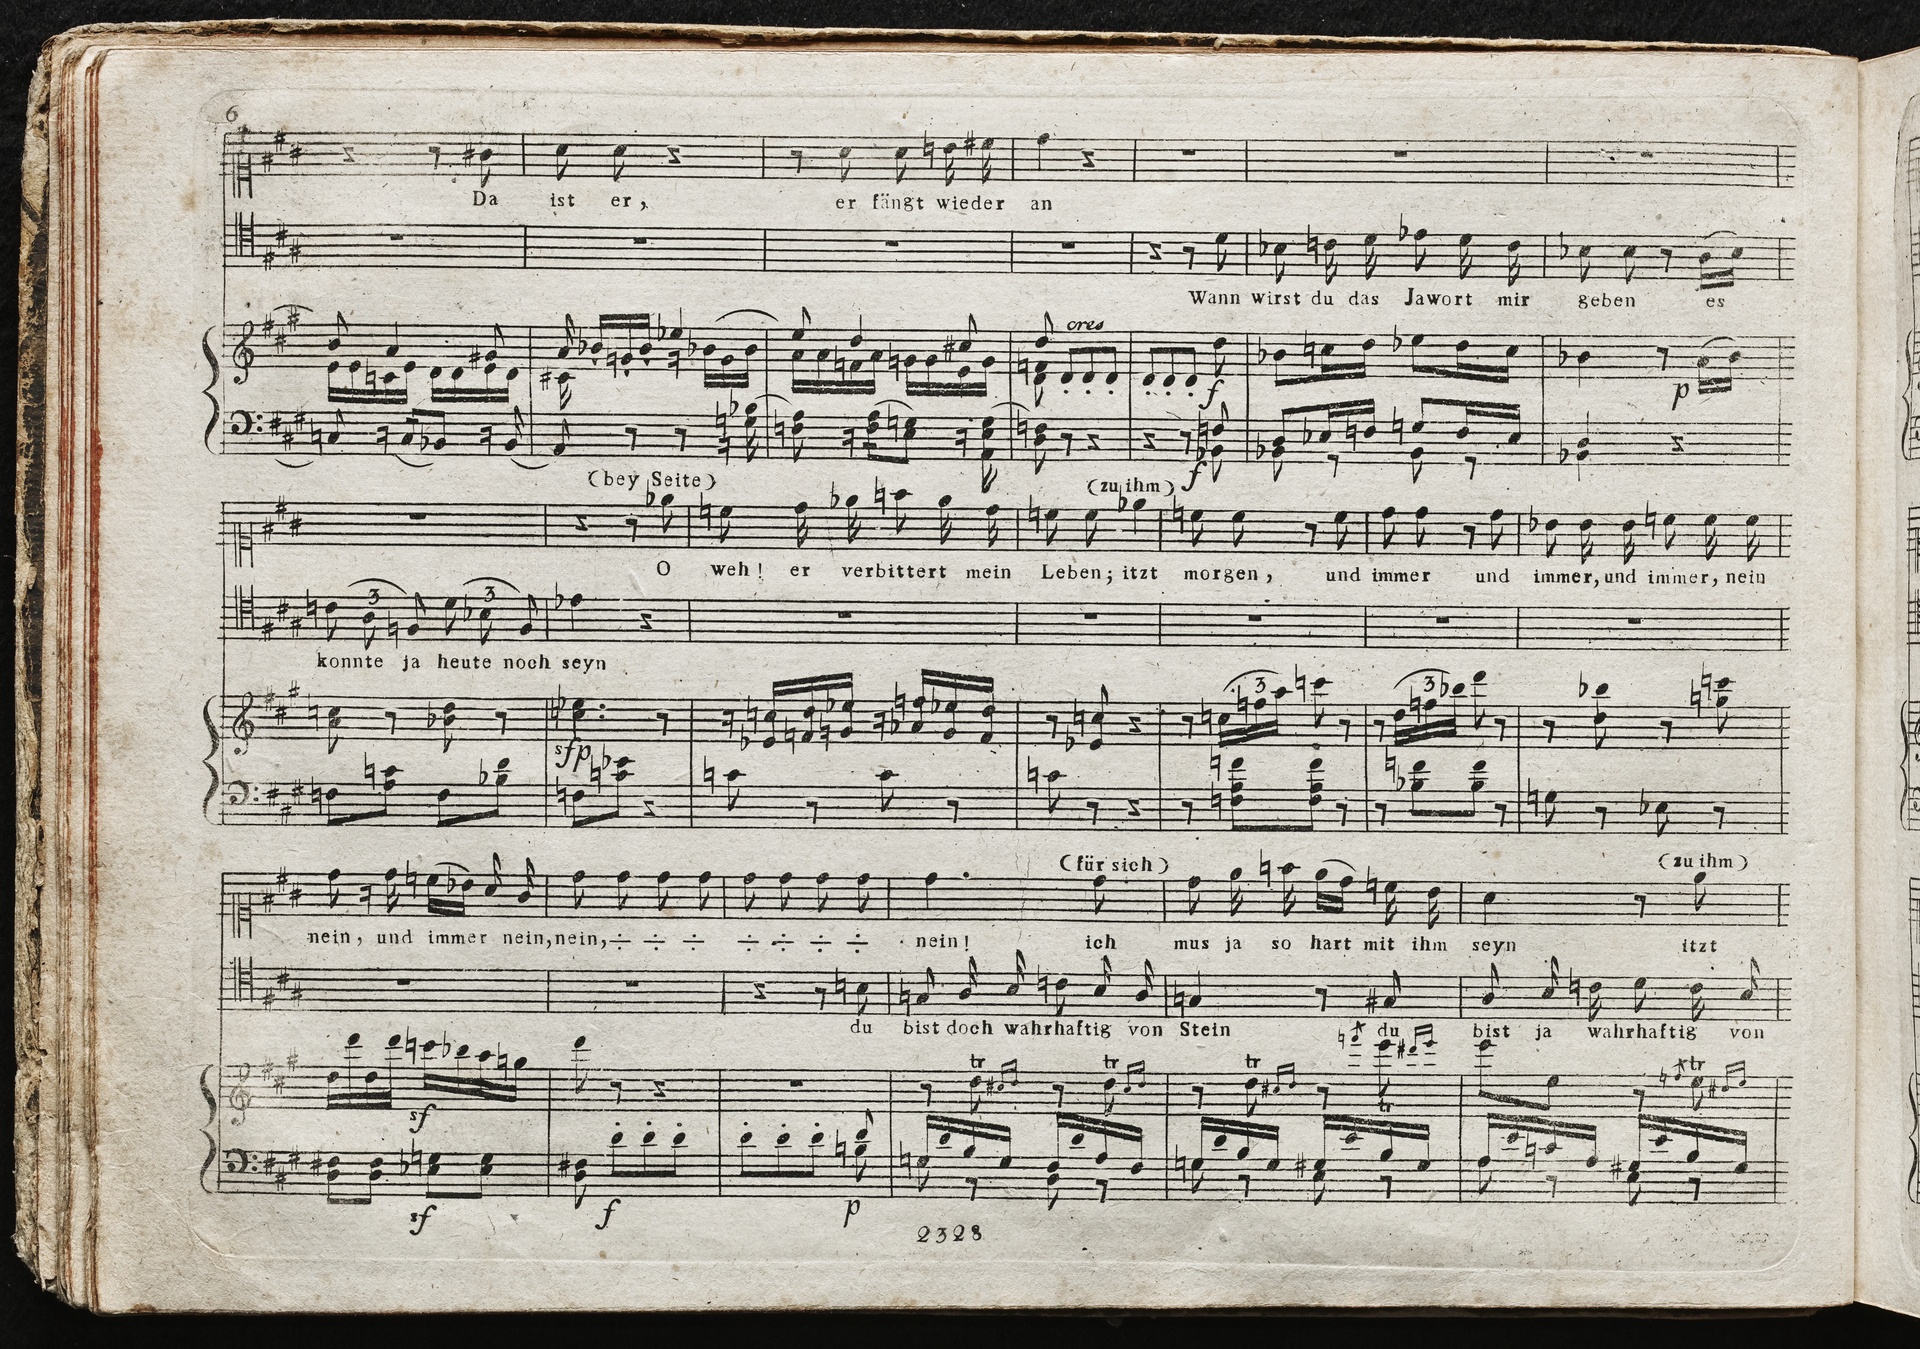 6
Da ist er, er fängt wieder an
Wann wirst du das Jawort mir geben es
cres
f
p
f
(bey Seite) (zu ihm)
O weh! er verbittert mein Leben; itzt morgen, und immer und immer, und immer, nein
3 3
konnte ja heute noch seyn
3 3
sfp
(für sich) (zu ihm)
nein, und immer nein, nein, ÷ ÷ ÷ ÷ ÷ ÷ ÷ nein! ich mus ja so hart mit ihm seyn itzt
du bist doch wahrhaftig von Stein du bist ja wahrhaftig von
tr tr tr tr tr
sf
sf f p
2328